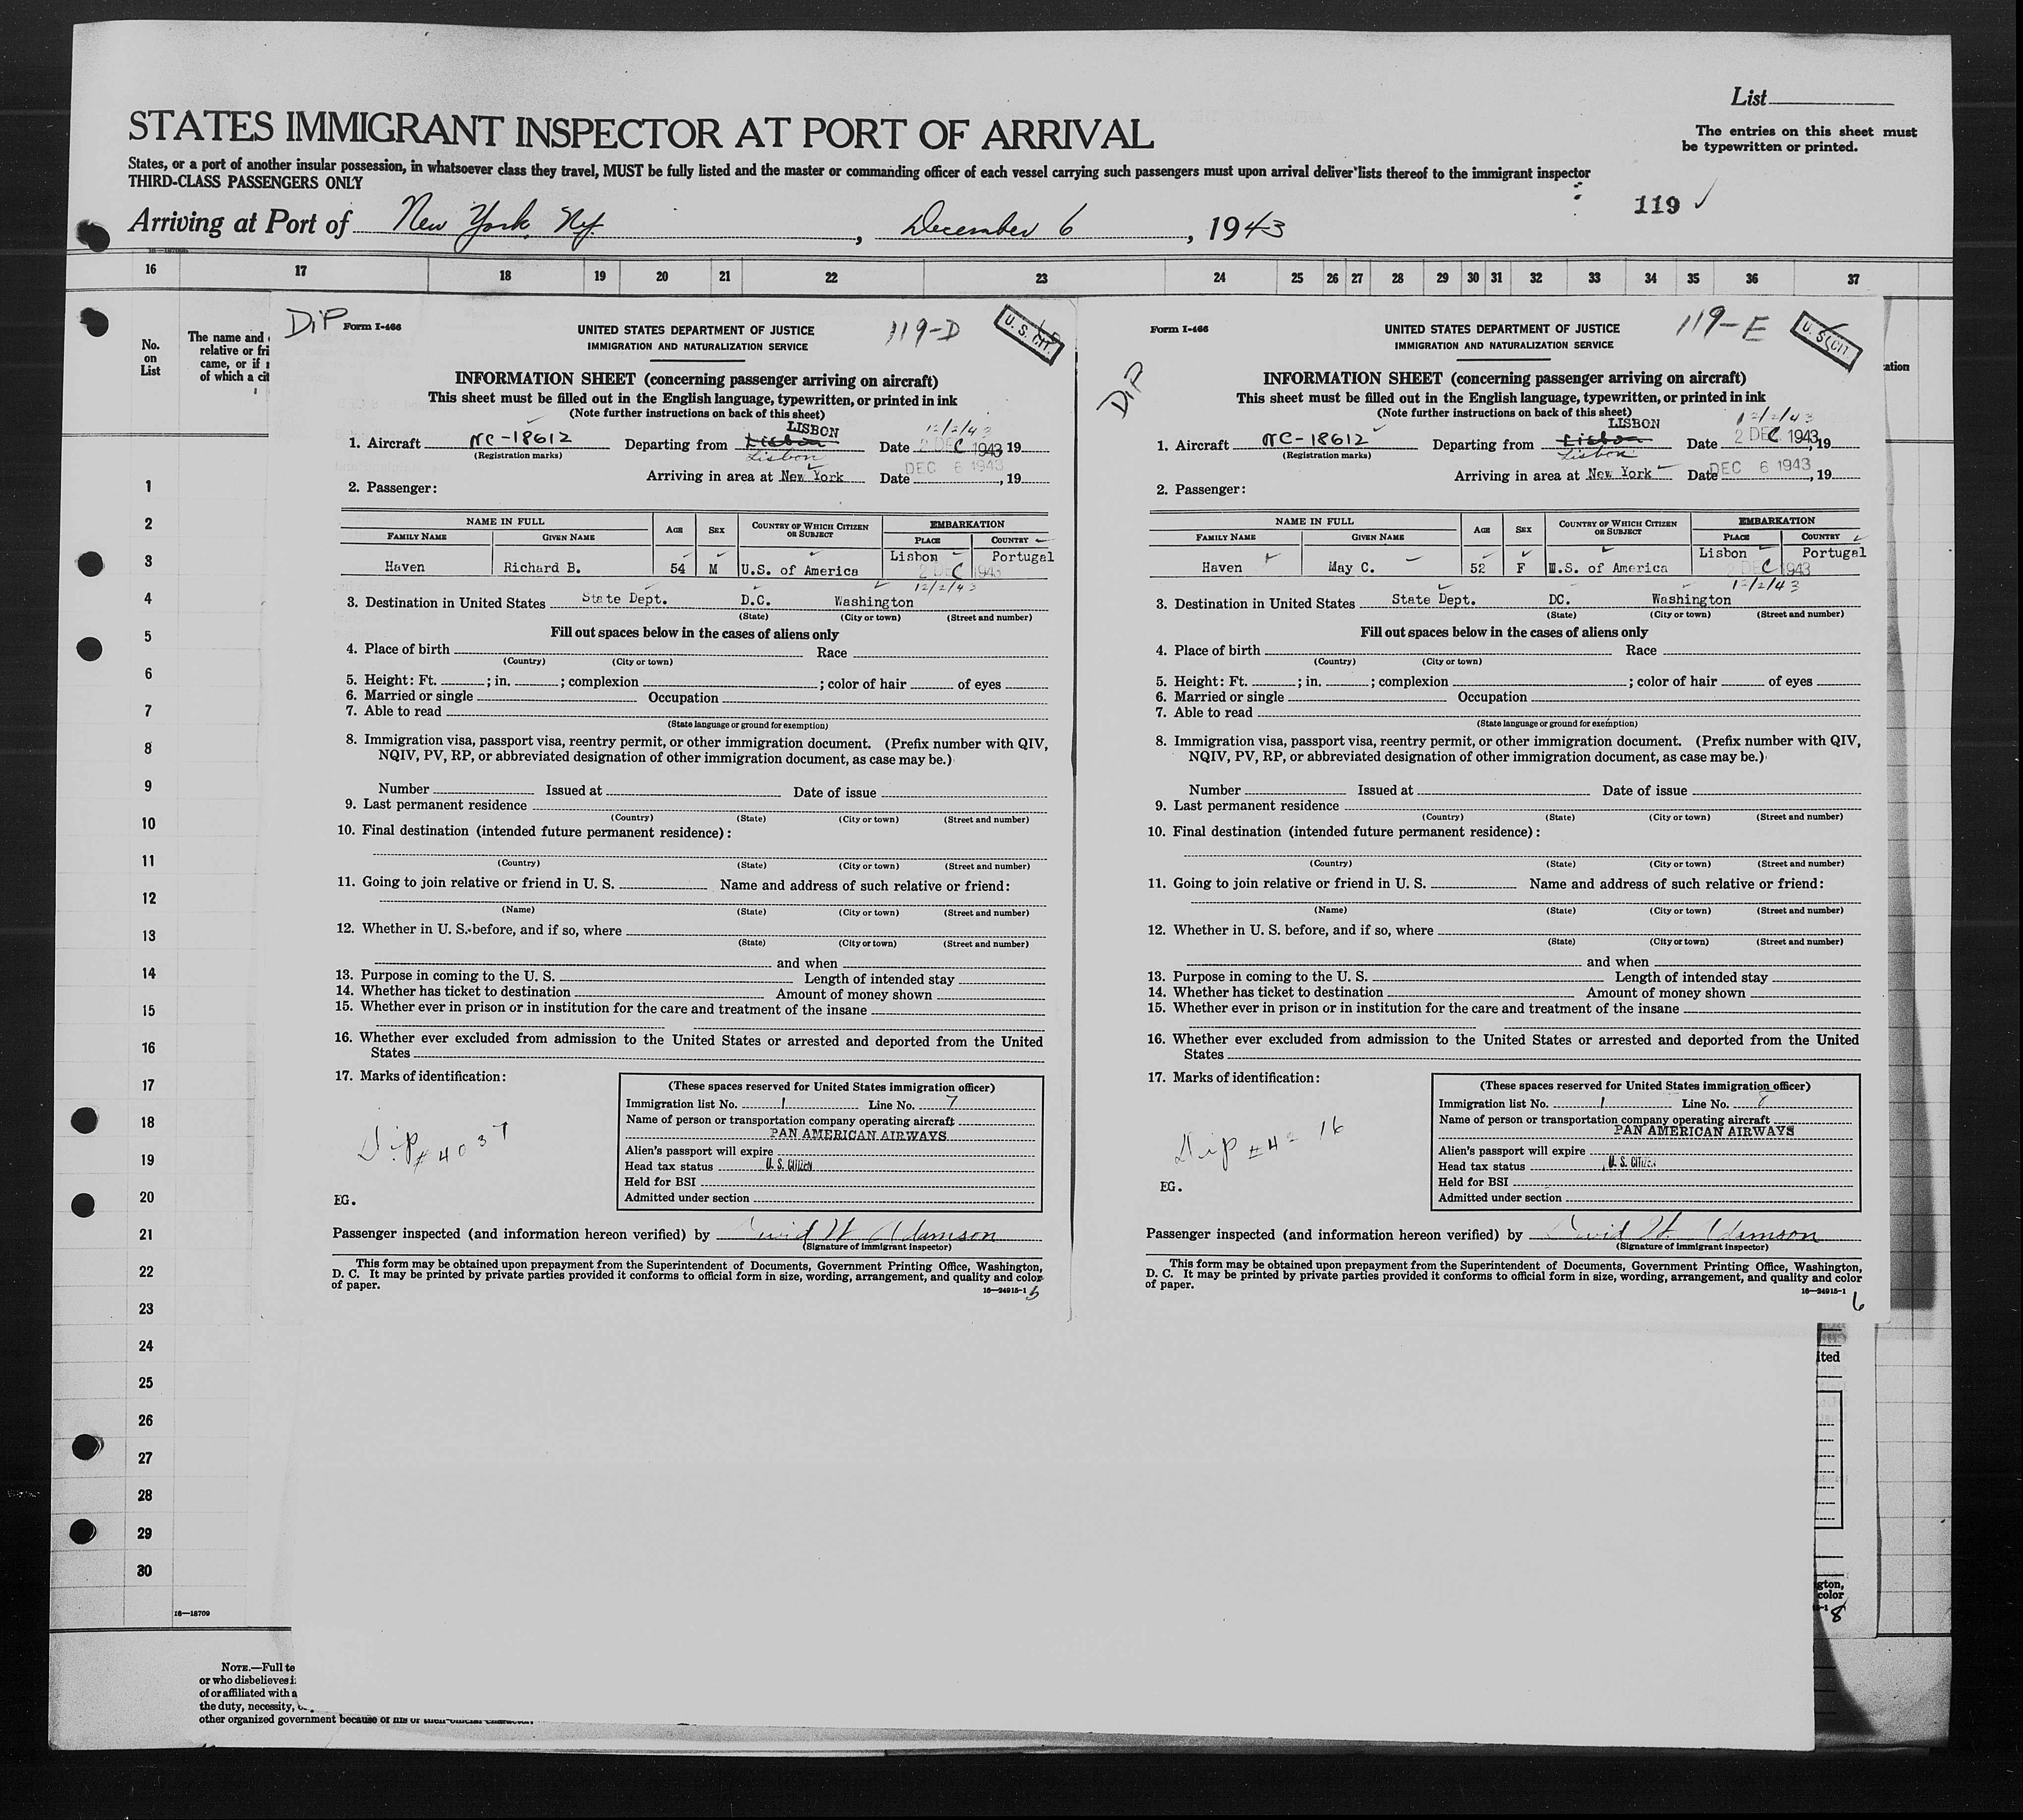 List
STATES IMMIGRANT INSPECTOR AT PORT OF ARRIVAL
The entries on this sheet must
be typewritten or printed.
States, or a port of another insular possession, in whatsoever class they travel, MUST be fully listed and the master or commanding officer of each vessel carrying such passengers must upon arrival deliver lists thereof to the immigrant inspector
THIRD-CLASS PASSENGERS ONLY
119 ✓
Arriving at Port of New York, Ny, December 6, 1943
16 17 18 19 20 21 22 23 24 25 26 27 28 29 30 31 32 33 34 35 36 37
No.
on
List
The name and
relative or fri
came, or if
of which a cit
1
2
3
4
5
6
7
8
9
10
11
12
13
14
15
16
17
18
19
20
21
22
23
24
25
26
27
28
29
30
16—18709
NOTE.—Full te
or who disbelieves i
of or affiliated with a
the duty, necessity,
other organized government because of his or their official character.
DiP Form I-466
UNITED STATES DEPARTMENT OF JUSTICE
IMMIGRATION AND NATURALIZATION SERVICE
119-D
U. S. CIT.
INFORMATION SHEET (concerning passenger arriving on aircraft)
This sheet must be filled out in the English language, typewritten, or printed in ink
(Note further instructions on back of this sheet)
LISBON 12/2/43
1. Aircraft NC-18612 Departing from Lisbon Date 2 DEC 1943 19
(Registration marks) Lisbon
Arriving in area at New York Date DEC 6 1943, 19
2. Passenger:
NAME IN FULL AGE SEX COUNTRY OF WHICH CITIZEN OR SUBJECT EMBARKATION
FAMILY NAME GIVEN NAME PLACE COUNTRY
Lisbon Portugal
Haven Richard B. 54 M U.S. of America 2 DEC 1943
12/2/43
3. Destination in United States State Dept. D.C. Washington
(State) (City or town) (Street and number)
Fill out spaces below in the cases of aliens only
4. Place of birth Race
(Country) (City or town)
5. Height: Ft. ; in. ; complexion ; color of hair of eyes
6. Married or single Occupation
7. Able to read
(State language or ground for exemption)
8. Immigration visa, passport visa, reentry permit, or other immigration document. (Prefix number with QIV,
NQIV, PV, RP, or abbreviated designation of other immigration document, as case may be.)
Number Issued at Date of issue
9. Last permanent residence
(Country) (State) (City or town) (Street and number)
10. Final destination (intended future permanent residence):
(Country) (State) (City or town) (Street and number)
11. Going to join relative or friend in U. S. Name and address of such relative or friend:
(Name) (State) (City or town) (Street and number)
12. Whether in U. S. before, and if so, where
(State) (City or town) (Street and number)
and when
13. Purpose in coming to the U. S. Length of intended stay
14. Whether has ticket to destination Amount of money shown
15. Whether ever in prison or in institution for the care and treatment of the insane
16. Whether ever excluded from admission to the United States or arrested and deported from the United
States
17. Marks of identification:
(These spaces reserved for United States immigration officer)
Immigration list No. 1 Line No. 7
Name of person or transportation company operating aircraft
PAN AMERICAN AIRWAYS
Alien's passport will expire
Head tax status U. S. CITIZEN
Held for BSI
Admitted under section
Dip #4037
EG.
Passenger inspected (and information hereon verified) by David H Adamson
(Signature of immigrant inspector)
This form may be obtained upon prepayment from the Superintendent of Documents, Government Printing Office, Washington,
D. C. It may be printed by private parties provided it conforms to official form in size, wording, arrangement, and quality and color
of paper.
16—24915-1 5
DiP
Form I-466
UNITED STATES DEPARTMENT OF JUSTICE
IMMIGRATION AND NATURALIZATION SERVICE
119-E
U. S. CIT.
INFORMATION SHEET (concerning passenger arriving on aircraft)
This sheet must be filled out in the English language, typewritten, or printed in ink
(Note further instructions on back of this sheet)
LISBON 12/2/43
1. Aircraft NC-18612 Departing from Lisbon Date 2 DEC 1943, 19
(Registration marks) Lisbon
Arriving in area at New York Date DEC 6 1943, 19
2. Passenger:
NAME IN FULL AGE SEX COUNTRY OF WHICH CITIZEN OR SUBJECT EMBARKATION
FAMILY NAME GIVEN NAME PLACE COUNTRY
Lisbon Portugal
Haven May C. 52 F U.S. of America 2 DEC 1943
12/2/43
3. Destination in United States State Dept. DC. Washington
(State) (City or town) (Street and number)
Fill out spaces below in the cases of aliens only
4. Place of birth Race
(Country) (City or town)
5. Height: Ft. ; in. ; complexion ; color of hair of eyes
6. Married or single Occupation
7. Able to read
(State language or ground for exemption)
8. Immigration visa, passport visa, reentry permit, or other immigration document. (Prefix number with QIV,
NQIV, PV, RP, or abbreviated designation of other immigration document, as case may be.)
Number Issued at Date of issue
9. Last permanent residence
(Country) (State) (City or town) (Street and number)
10. Final destination (intended future permanent residence):
(Country) (State) (City or town) (Street and number)
11. Going to join relative or friend in U. S. Name and address of such relative or friend:
(Name) (State) (City or town) (Street and number)
12. Whether in U. S. before, and if so, where
(State) (City or town) (Street and number)
and when
13. Purpose in coming to the U. S. Length of intended stay
14. Whether has ticket to destination Amount of money shown
15. Whether ever in prison or in institution for the care and treatment of the insane
16. Whether ever excluded from admission to the United States or arrested and deported from the United
States
17. Marks of identification:
(These spaces reserved for United States immigration officer)
Immigration list No. 1 Line No. 8
Name of person or transportation company operating aircraft
PAN AMERICAN AIRWAYS
Alien's passport will expire
Head tax status U. S. CITIZEN
Held for BSI
Admitted under section
Dip #4016
EG.
Passenger inspected (and information hereon verified) by David H. Adamson
(Signature of immigrant inspector)
This form may be obtained upon prepayment from the Superintendent of Documents, Government Printing Office, Washington,
D. C. It may be printed by private parties provided it conforms to official form in size, wording, arrangement, and quality and color
of paper.
16—24915-1 6
ation
ited
gton,
color
-1 8